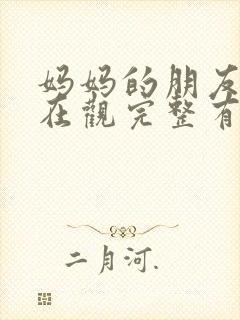 妈妈的朋友
在觀完整有
二月河.